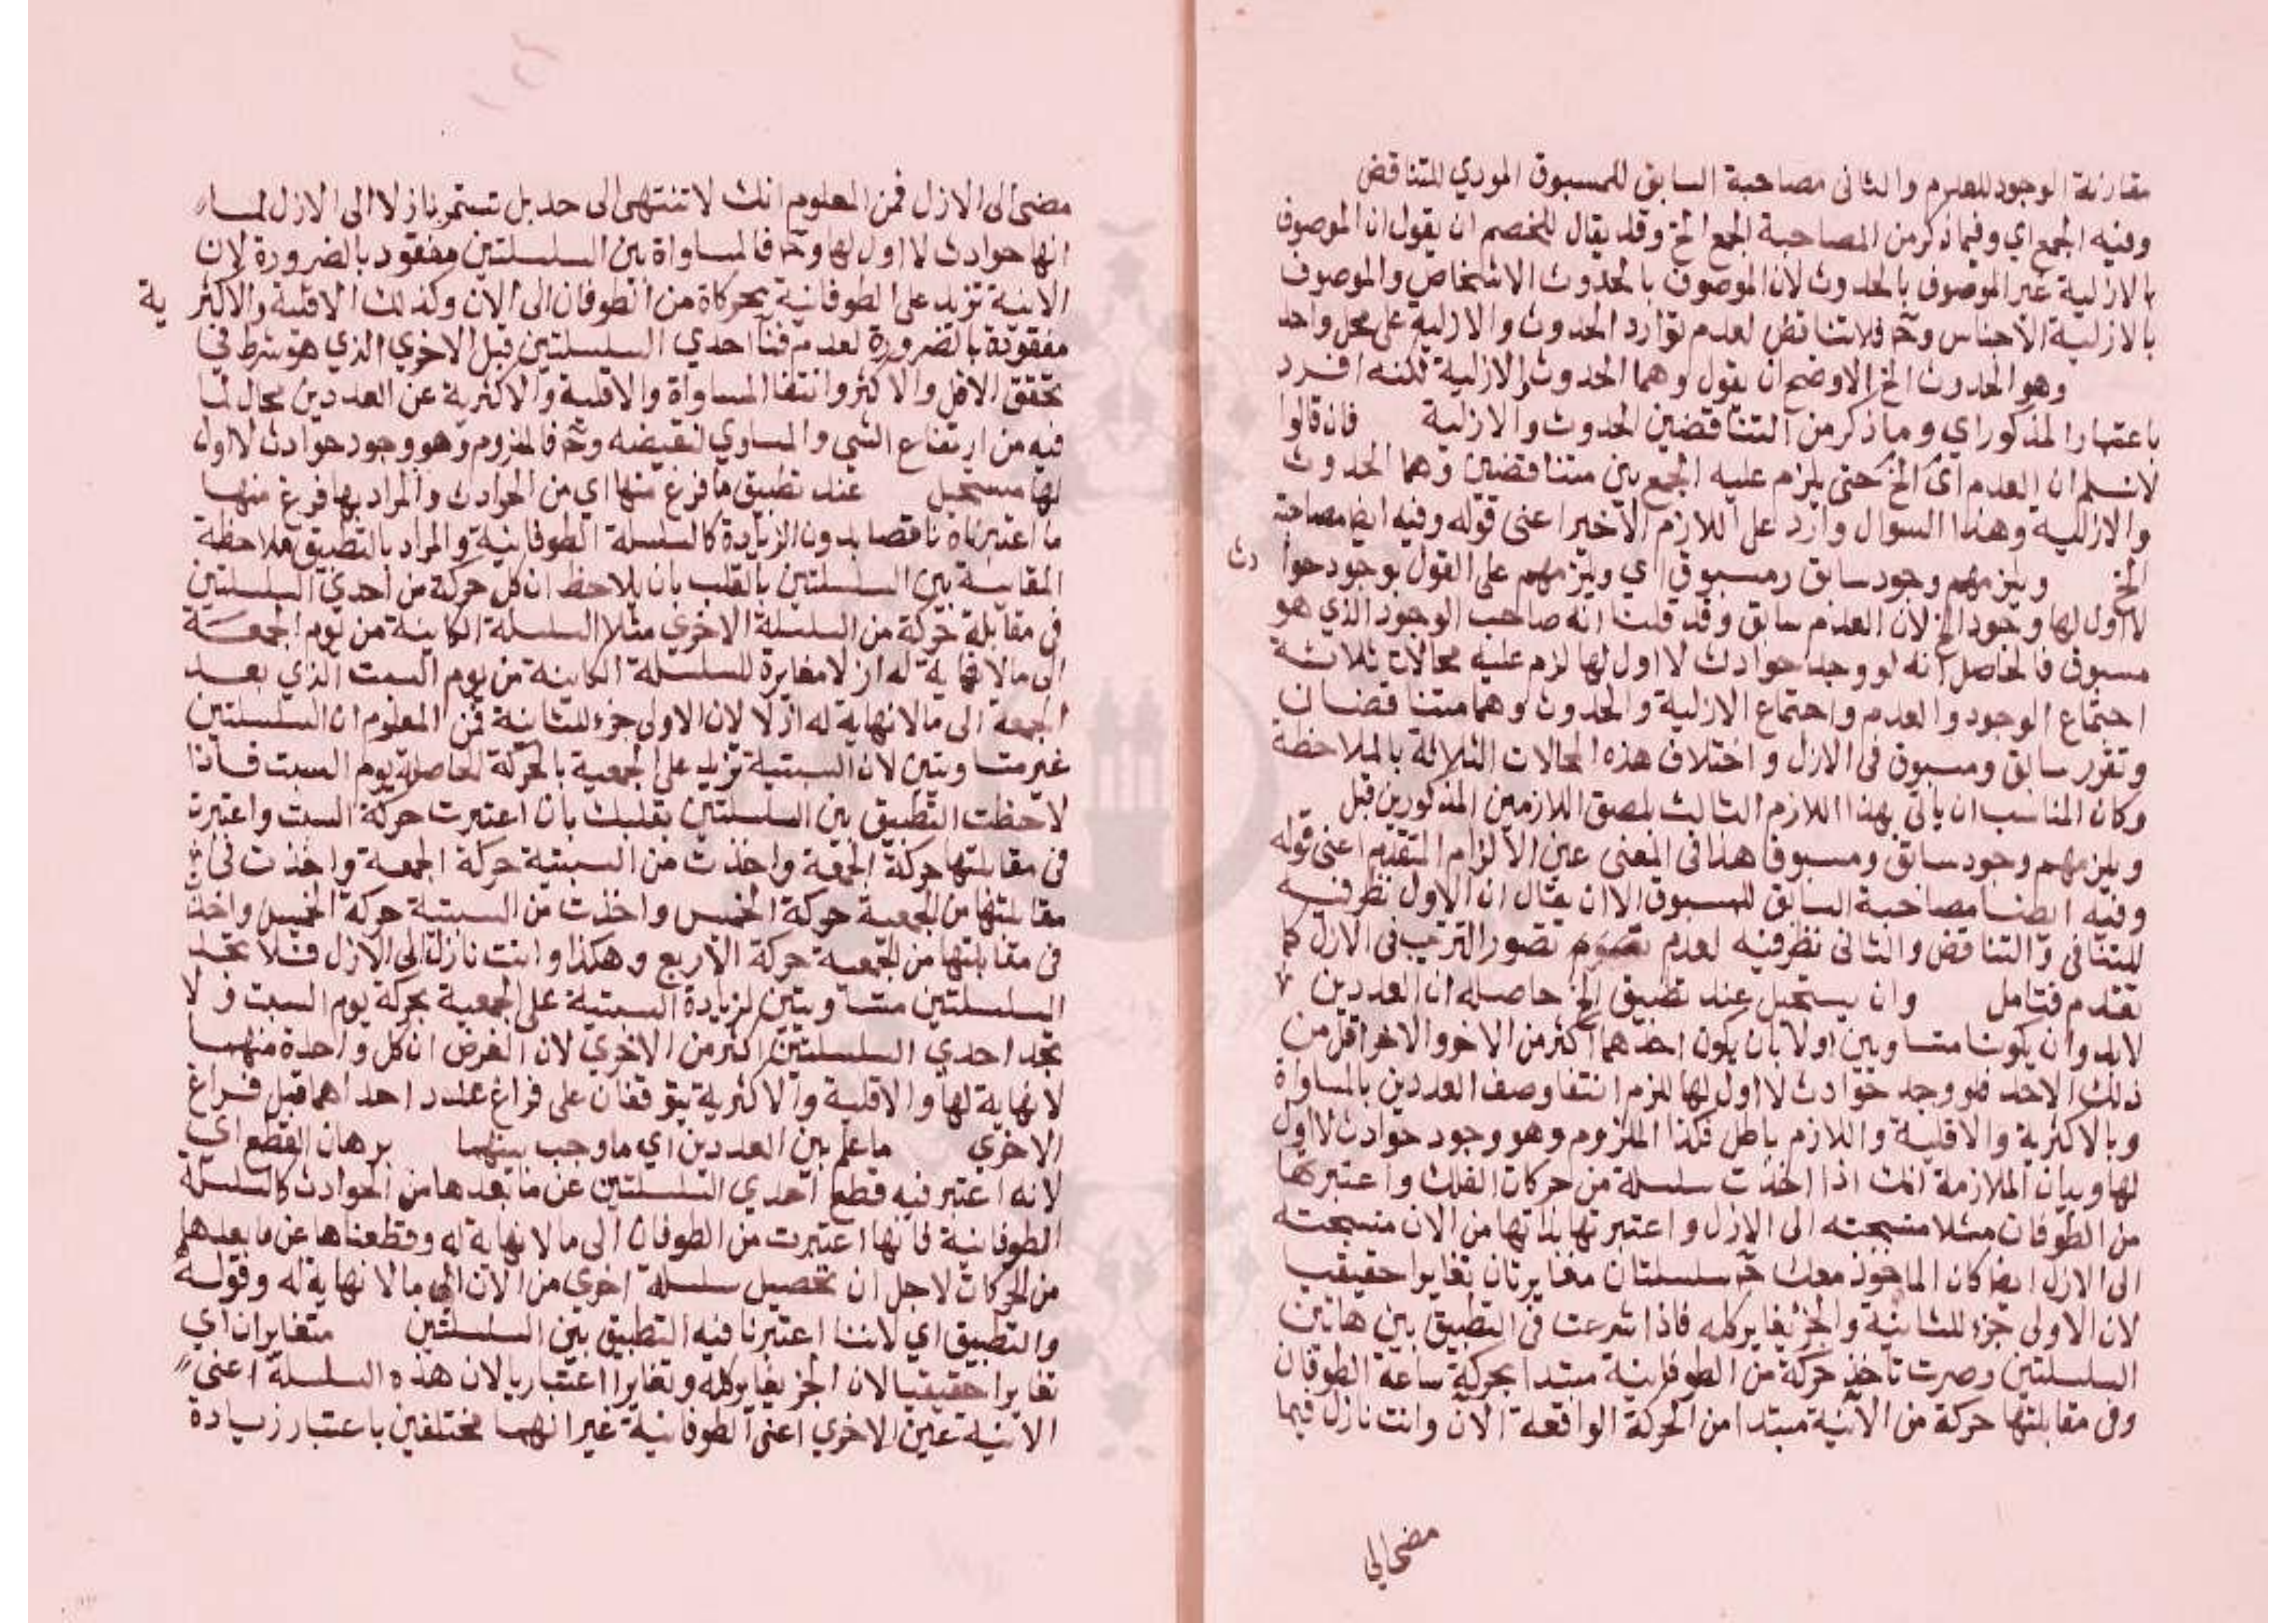 مقارنة الوجود للعدم والثاني مصاحبة السابق للمسبوق المودي للتناقض
وفيه الجمع اي وفيما ذكر من المصاحبة الجمع الخ وقد يقال للخصم ان يقول ان الموصوف
بالازلية غير الموصوف بالحدوث لان الموصوف بالحدوث الاشخاص والموصوف
بالازلية الاجناس وح فلا تناقض لعدم توارد الحدوث والازلية على محل واحد
وهو الحدوث الخ الاوضح ان يقول وهما الحدوث والازلية لكنه افرد
باعتبار المذكور اي وما ذكر من المتناقضين الحدوث والازلية فان قالوا
لا نسلم ان العدم اي الخ حتى يلزم عليه الجمع بين متناقضين وهما الحدوث
والازلية وهذا السوال وارد على اللازم الاخير اعني قوله وفيه ايضا مصاحبة
الخ ويلزمهم وجود سابق ومسبوق اي ويلزمهم على القول بوجود حوادث
لا اول لها وجود الخ لان العدم سابق وقد قلت انه صاحب الوجود الذي هو
مسبوق فالحاصل انه لو وجد حوادث لا اول لها لزم عليه محالات ثلاثة
اجتماع الوجود والعدم واجتماع الازلية والحدوث وهما متناقضان
وتقرر سابق ومسبوق في الازل واختلاف هذه المحالات الثلاثة بالملاحظة
وكان المناسب ان ياتي بهذا اللازم الثالث لصق اللازمين المذكورين قبل
ويلزمهم وجود سابق ومسبوقا هذا في المعنى عين الالزام المتقدم اعني قوله
وفيه ايضا مصاحبة السابق للمسبوق الا ان يقال ان الاول نظر فيه
للتنافي والتناقض والثاني نظر فيه لعدم تصور الترتيب في الازل كما
تقدم فتامل وان يستحيل عند تطبيق الخ حاصله ان العددين
لابد وان يكونا متساويين اولا بان يكون احدهما اكثر من الاخر والاخر اقل من
ذلك الاحد فلو وجد حوادث لا اول لها للزم انتفا وصف العددين بالمساواة
وبالاكثرية والاقلية واللازم باطل فكذا الملزوم وهو وجود حوادث لا اول
لها وبيان الملازمة انك اذا اخذت سلسلة من حركات الفلك واعتبرها
من الطوفان مثلا منسحبة الى الازل واعتبرتها بذاتها من الان منسحبة
الى الازل ايضا كان الماخوذ معك ح سلسلتان مغايرتان تغايرا حقيقيا
لان الاولى جزء للثانية والجز يغاير كله فاذا شرعت في التطبيق بين هاتين
السلسلتين وصرت تاخذ حركة من الطوفانية مبتدا بحركة ساعة الطوفان
وفي مقابلتها حركة من الانية مبتدا من الحركة الواقعة الان وانت نازل فيما
مضى الى
مضى الى الازل فمن المعلوم انك لا تنتهى الى حد بل تستمر نازلا الى الازل لما
انها حوادث لا اول لها وح فالمساواة بين السلسلتين مفقود بالضرورة لان
الانية تزيد على الطوفانية بحركاة من الطوفان الى الان وكذلك الاقلية والاكثرية
مفقودة بالضرورة لعدم فنا احدي السلسلتين قبل الاخري الذي هو شرط في
تحقق الاقل والاكثر وانتفا المساواة والاقلية والاكثرية عن العددين محال لما
فيه من ارتفاع الشي والمساوي لنقيضه وح فالملزوم وهو وجود حوادث لا اول
لها مستحيل عند تطبيق ما فرغ منها اي من الحوادث والمراد بها فرغ منها
ما اعتبرناه ناقصا بدون الزيادة كالسلسلة الطوفانية والمراد بالتطبيق ملاحظة
المقابسة بين السلسلتين بالقلب بان يلاحظ ان كل حركة من احدي السلسلتين
في مقابلة حركة من السلسلة الاخري مثلا السلسلة الكاينة من يوم الجمعة
الى ما لا نهاية له ازلا مغايرة للسلسلة الكاينة من يوم السبت الذي بعد
الجمعة الى مالا نهاية له ازلا لان الاولى جزء للثانية فمن المعلوم ان السلسلتين
غير متساويتين لان السبتية تزيد على الجمعية بالحركة الحاصلة يوم السبت فاذا
لاحظت التطبيق بين السلسلتين بقلبك بان اعتبرت حركة السبت واعتبرت
في مقابلتها حركة الجمعة واخذت من السبتية حركة الجمعة واخذت في
مقابلتها من الجمعية حركة الخميس واخذت من السبتية حركة الخميس واخذت
في مقابلتها من الجمعية حركة الاربع وهكذا وانت نازلة الى الازل فلا تجد
السلسلتين متساويتين لزيادة السبتية على الجمعية بحركة يوم السبت ولا
تجد احدي السلسلتين اكثر من الاخري لان الغرض ان كل واحدة منهما
لا نهاية لها والاقلية والاكثرية يتوقفان على فراغ عدد احداهما قبل فراغ
الاخري ما علم بين العددين اي ما وجب بينهما برهان القطع اي
لانه اعتبر فيه قطع احدي السلسلتين عن ما بعدها من الحوادث كالسلسلة
الطوفانية فانها اعتبرت من الطوفان الى ما لا نهاية له وقطعناها عن ما بعدها
من الحركات لاجل ان تحصيل سلسلة اخري من الان الى مالا نهاية له وقوله
والتطبيق اي لاننا اعتبرنا فيه التطبيق بين السلسلتين متغايران اي
تغايرا حقيقيا لان الجز يغاير كله وتغايرا اعتباريا لان هذه السلسلة اعني
الانية عين الاخري اعني الطوفانية غير انهما مختلفين باعتبار زيادة